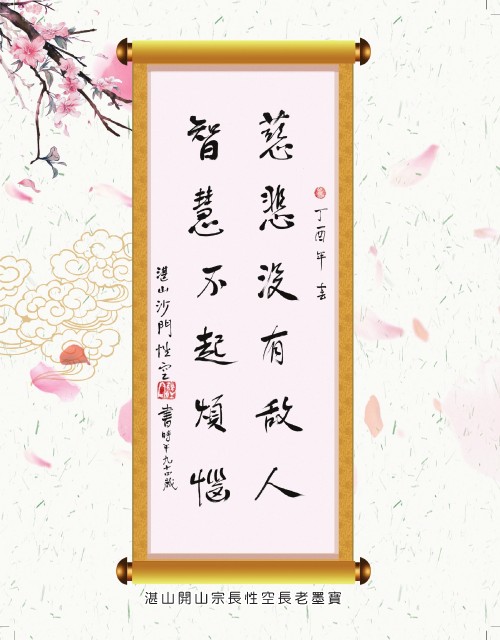 丁酉年 書
慈悲没有敵人
智慧不起煩惱
湛山沙門性空
書時年九十四歲
湛山開山宗長性空長老墨寶